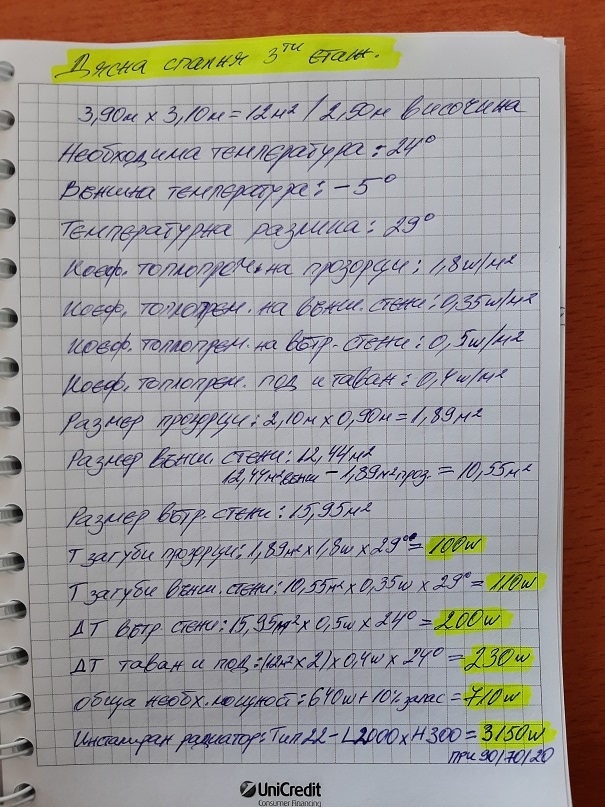 Дясна спалня 3ти етаж.
3,90м x 3,10м = 12м² / 2,90м височина
Необходима температура: 24°
Външна температура: -5°
Температурна разлика: 29°
Коеф. топлопрем. на прозорци: 1,8w/м²
Коеф. топлопрем. на външ. стени: 0,35w/м²
Коеф. топлопрем. на вътр. стени: 0,5w/м²
Коеф. топлопрем. под и таван: 0,4w/м²
Размер прозорци: 2,10м x 0,90м = 1,89м²
Размер външ. стени: 12,44м²
12,44м² външ - 1,89м² проз. = 10,55м²
Размер вътр. стени: 15,95м²
T загуби прозорци: 1,89м² x 1,8w x 29° = 100w
T загуби външ. стени: 10,55м² x 0,35w x 29° = 110w
ΔT вътр. стени: 15,95м² x 0,5w x 24° = 200w
ΔT таван и под: (12м² x 2) x 0,4w x 24° = 230w
обща необх. мощност: 640w + 10% запас = 710w
Инсталиран радиатор: Тип 22 - L2000 x H300 = 3150w
при 90/70/20
UniCredit
Consumer Financing